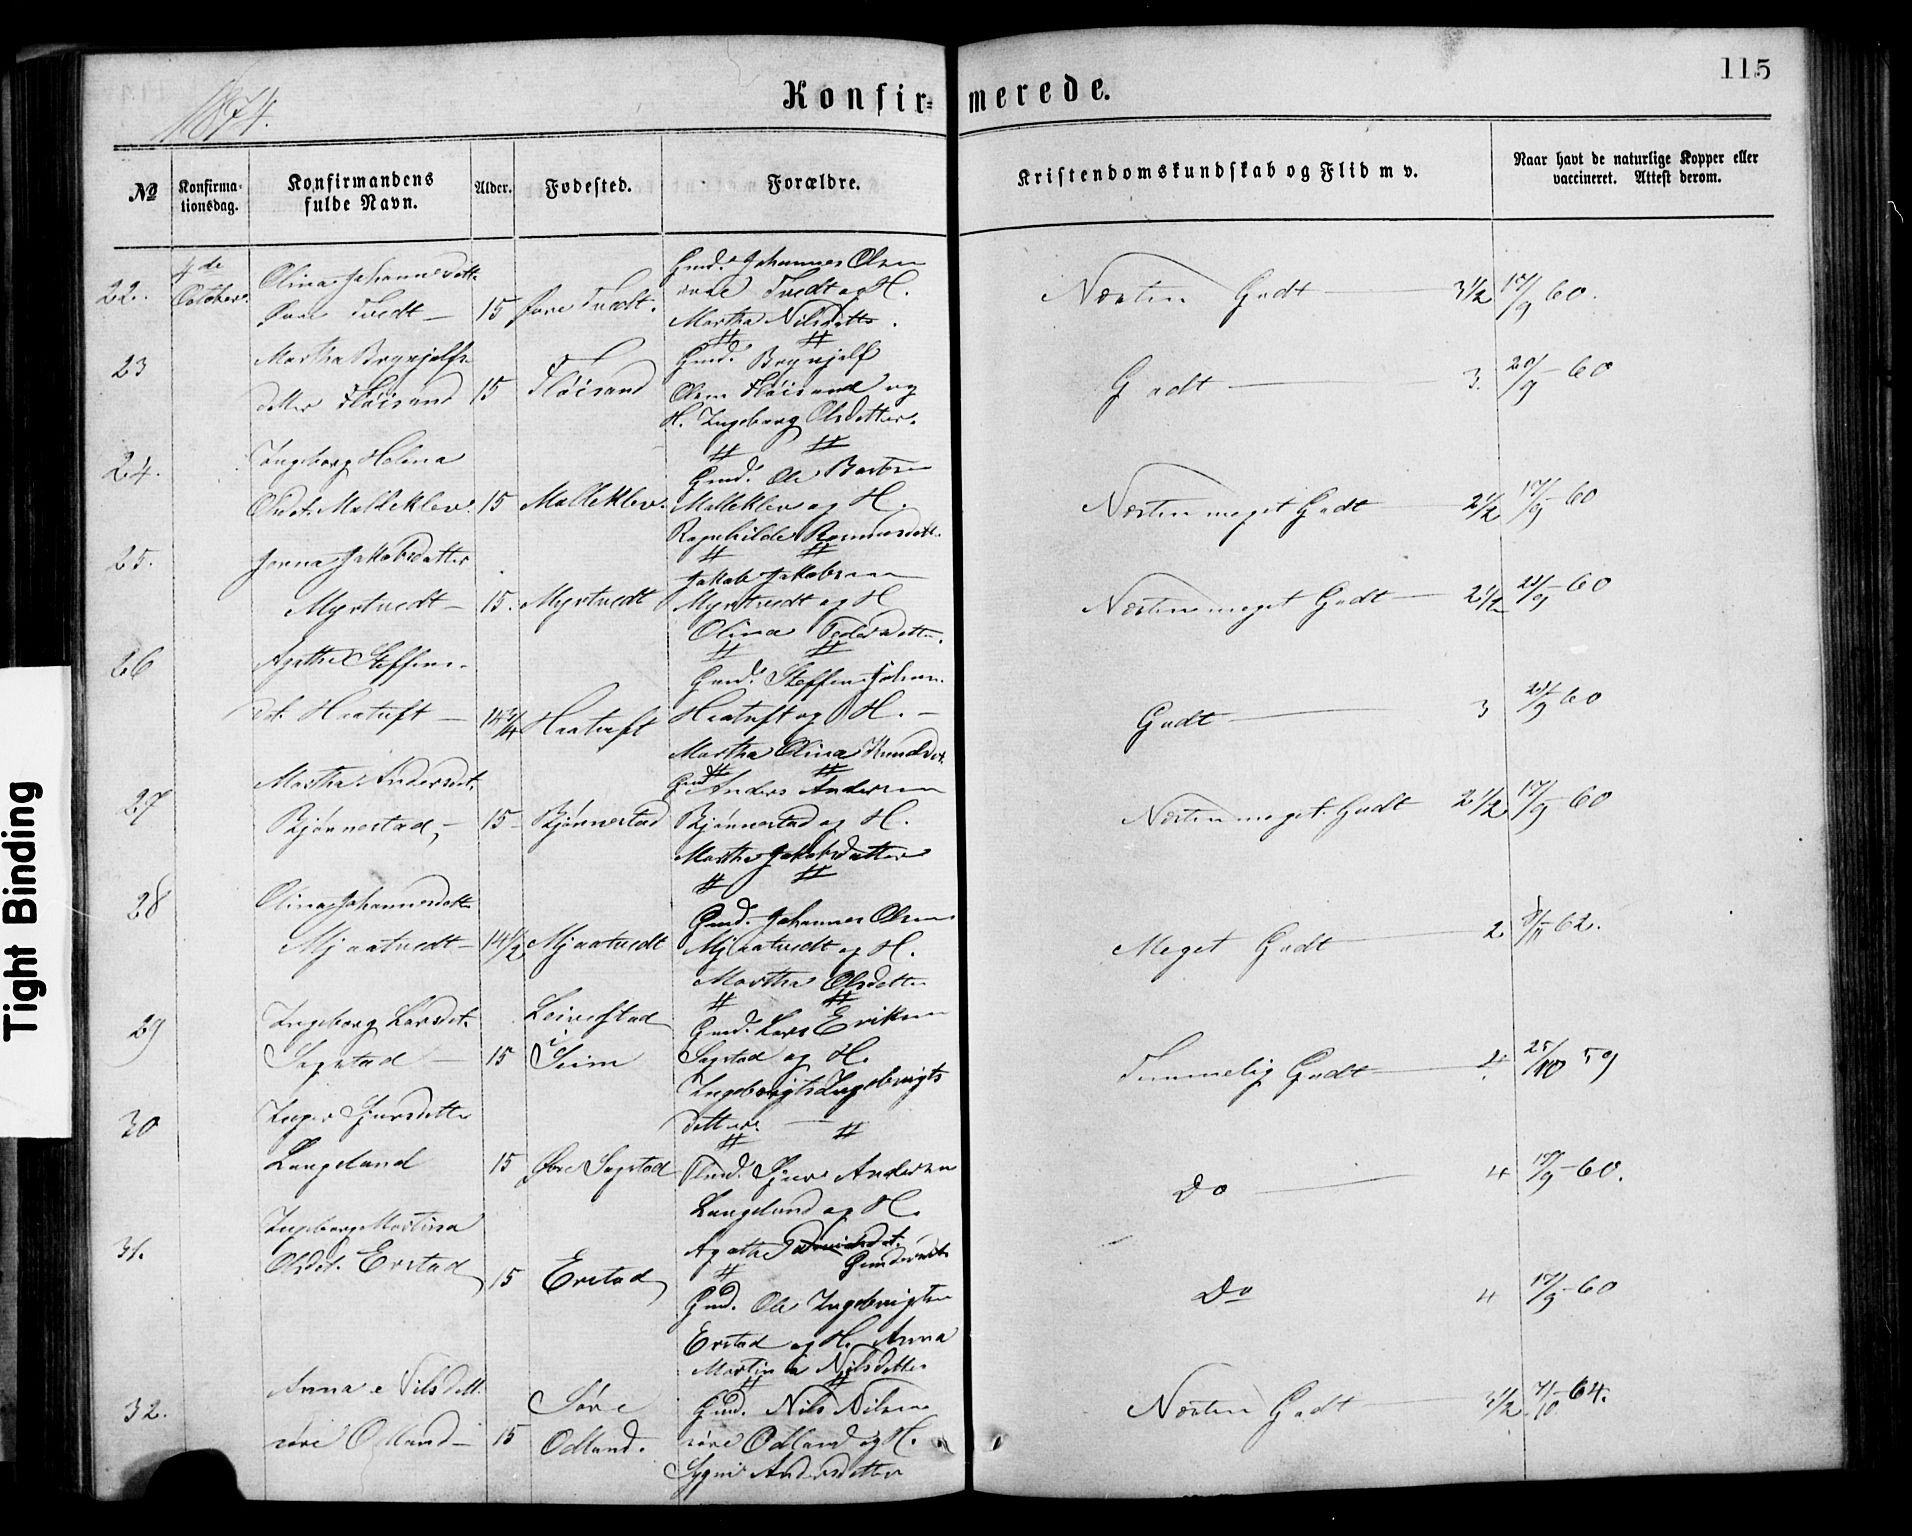 115
1874.
Konfir= merede.
No
Konfirma-
tionsdag.
Konfirmandens
fulde Navn.
Alder.
Fødested.
Forældre.
Kristendomskundskab og Flid m v.
Naar havt de naturlige Kopper eller
vaccineret. Attest derom.
22.
4de
October.
Olina Johannesdatt.
Øvre Tvedt — 15 Øvre Tvedt.
Gmd. Johannes Olsen
øvre Tvedt og H.
Martha Nilsdatter.
Næsten Godt — 3½ 17/9 60.
23
Martha Brynjulfs
datter Fløisand 15 Fløisand
Gmd. Brynjulf
Olsen Fløisand og
H. Ingeborg Olsdatter.
Godt — 3. 20/9 60
24.
Ingeborg Helena
Olsdt. Molleklev. 15 Molleklev.
Gmd. Ole
Molleklev og H.
Ragnhilde Rasmusdatt.
Næsten meget Godt — 2½ 17/9 60
25.
Jakobsdatter
Myrtvedt — 15. Myrtvedt
Jakob Jakobsen
Myrtvedt og H
Olina Pedersdatter.
Næsten meget Godt — 2½ 21/9 60
26
Agathe Steffens.
dt. Haatuft — 14¾ Haatuft
Gmd. Steffen Johnsen.
Haatuft og H. —
Martha Olina Knudsdt.
Godt — 3 60
27
Martha Andersdt.
Bjørnestad, — 15 — Bjørnestad
Gmd. Anders Andersen
Bjørnestad og H.
Martha Jakobsdatter
Næsten meget Godt 2½ 17/9 60
28
Olina Johannesdatt
Mjaatvedt — 14½ Mjaatvedt
Gmd. Johannes Olsen
Mjaatvedt og H.
Martha Olsdatter
Meget Godt — 2 8/11 62.
29
Ingeborg Larsdt.
Sagstad — 15
i
Seim
Gmd. Lars Eriksen
Sagstad og H.
Ingeborg Ingebrigts
datter.
Temmelig Godt — 4. 25/10 59
30
Inger Gjursdatter
Langeland 15 Øvre Sagstad
Gmd. Gjur Andersen
Langeland og H.
Agathe Gundersdt.
Do — 4 17/9 60.
31.
Ingeborg Martina
Olsdt. Erstad 15 Erstad
Gmd. Ole Ingebrigtsen
Erstad og H. Anna
Martina Nilsdatter
Do 4 17/9 60
32.
Anna Nilsdatt.
søre Odland — 15
Søre
Odland.
Gmd. Nils Nilsen
søre Odland og H.
Sygni Andersdatter
Næsten Godt — 3½ 7/10 64.
Tight Binding